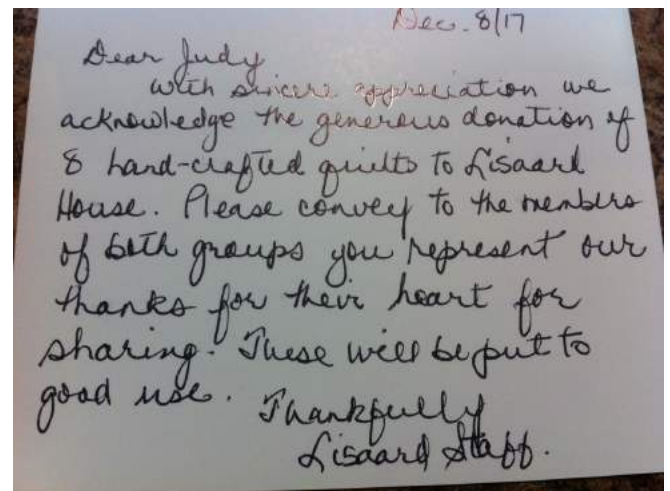 Dec. 8/17
Dear Judy
With sincere appreciation we
acknowledge the generous donation of
8 hand-crafted quilts to Lisaard
House. Please convey to the members
of both groups you represent our
thanks for their heart for
sharing. These will be put to
good use.
Thankfully
Lisaard Staff.